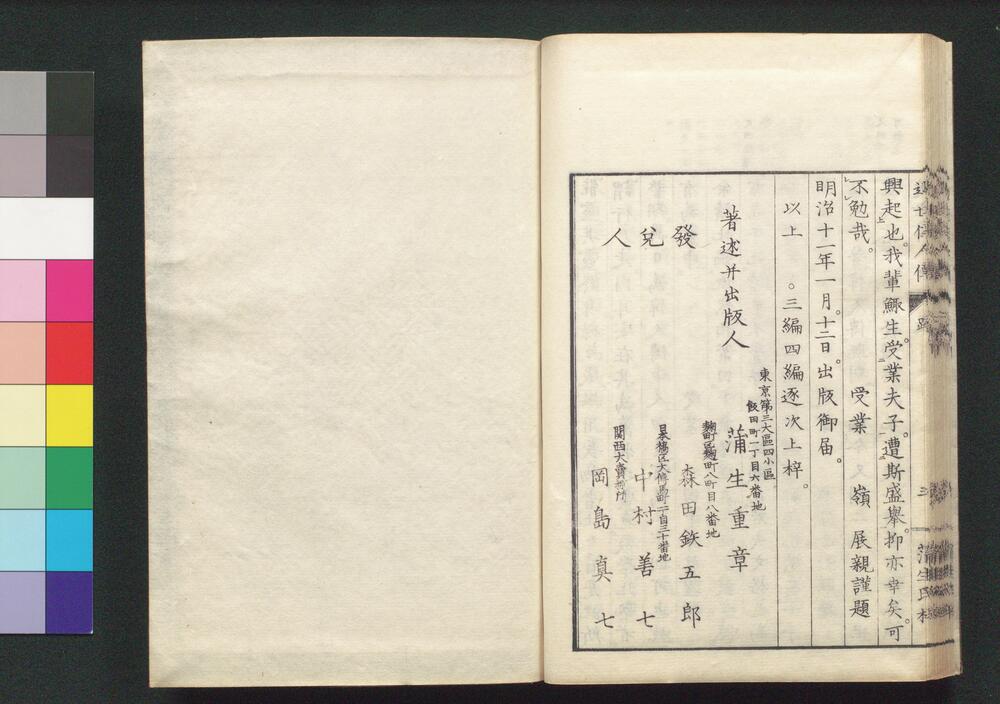 近世偉人傳 跋 三 蒲生氏梓
興起也。我輩鯫生。受業夫子。遭斯盛擧。抑亦幸矣。可
不勉哉。 受業 嶺 展親謹題
明治十一年一月。十二日。出版御届。
以上 。三編四編逐次上梓。
著述并出版人
東京第三大區四小區
飯田町一丁目六番地
蒲生重章
發兌人
麹町區麹町八町目八番地
森田鉄五郎
中村善七
関西大賣捌所
岡島真七